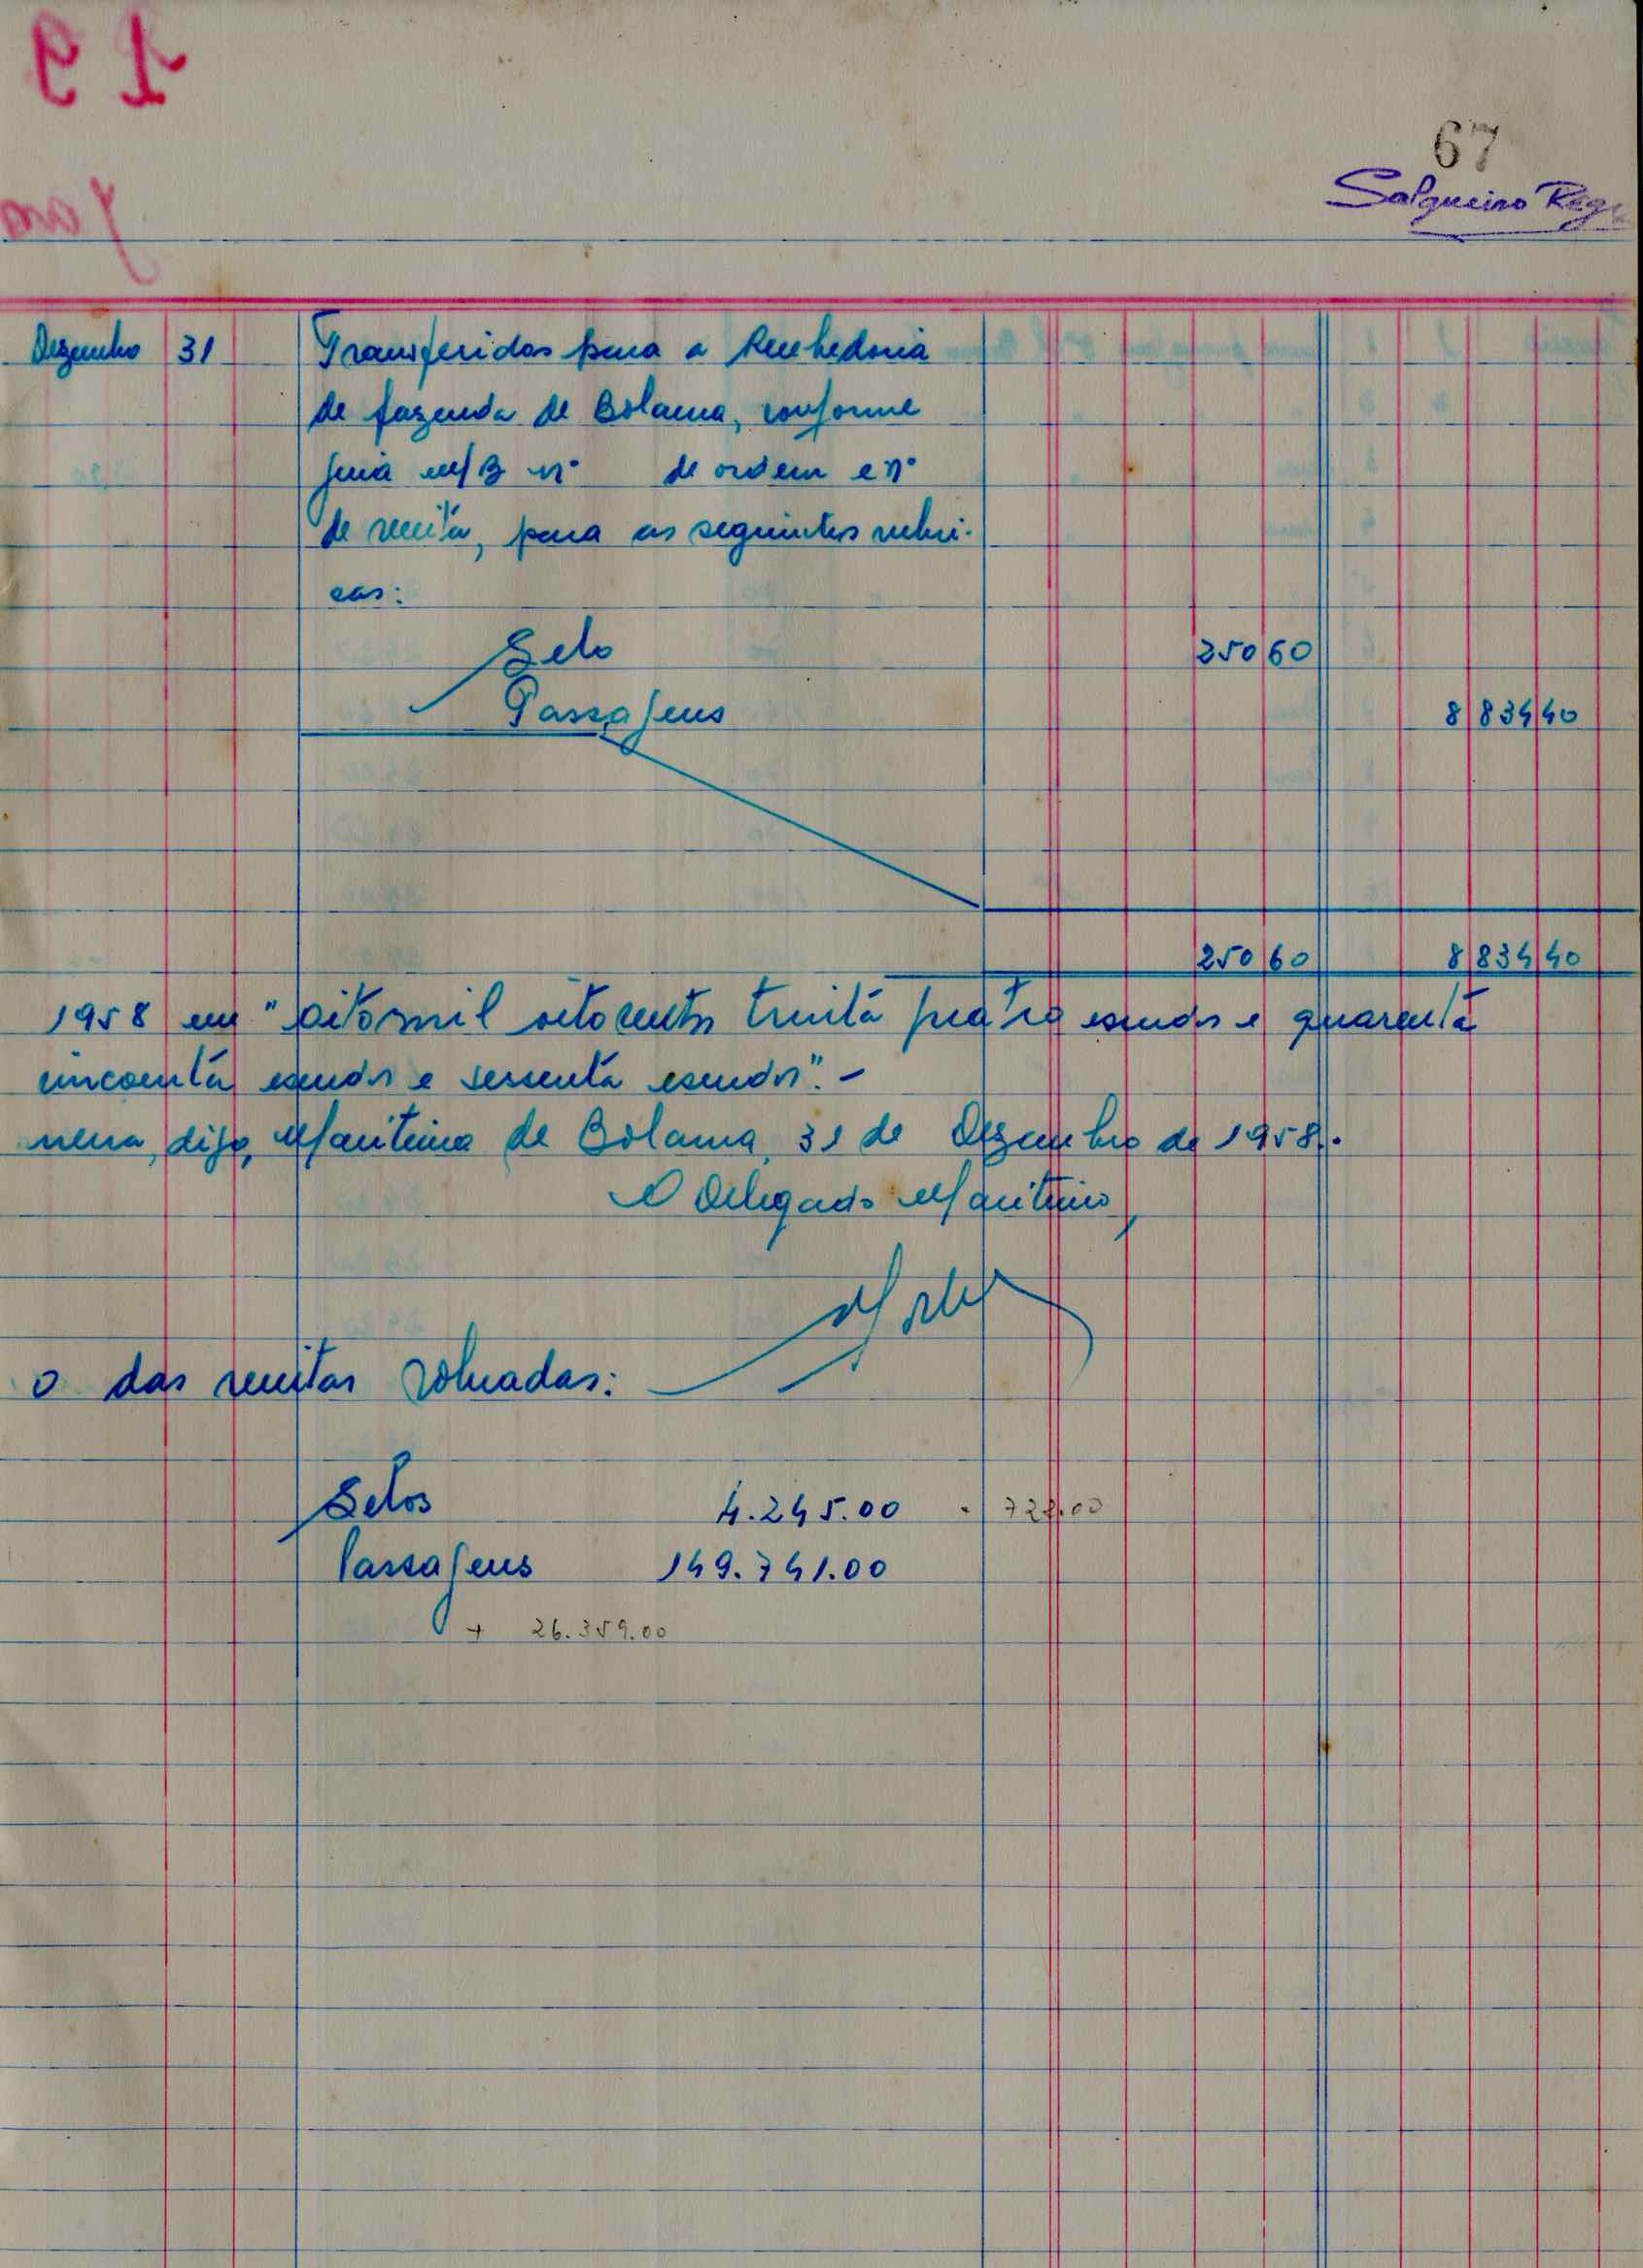 67
Salgueiro Rego
Dezembro 31 Transferidos para a Recebedoria
de fazenda de Bolama, conforme
guia m/B nº de ordem e nº
de receita, para as seguintes rubri-
cas:
Selo 250 60
Passagens 8 834 40
250 60 8 834 40
1958 em "oito mil oitocentos trinta quatro escudos e quarenta
cincoenta escudos e sessenta escudos". -
nena, digo, Maritima de Bolama, 31 de Dezembro de 1958.
O Delegado Maritimo,
o das receitas cobradas:
Selos 4.245.00 722.00
Passagens 149.741.00
+ 26.359.00